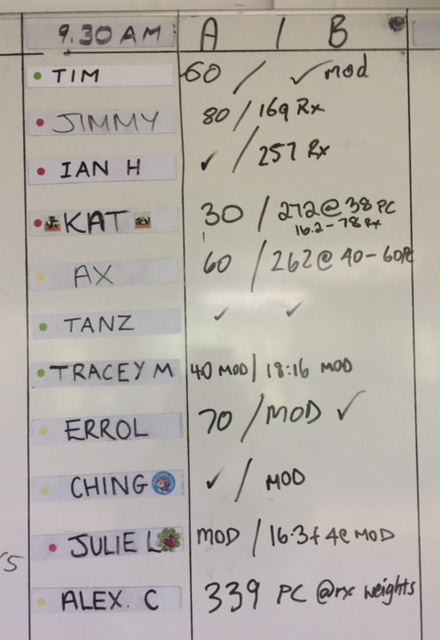 9.30 AM A / B
TIM 60 / ✓ mod
JIMMY 80 / 169 Rx
IAN H ✓ / 257 Rx
KAT 30 / 272 @ 38 PC
16.2 - 78 Rx
AX 60 / 262 @ 40 - 60 PC
TANZ ✓ ✓
TRACEY M 40 MOD / 18:16 MOD
ERROL 70 / MOD ✓
CHING ✓ / MOD
JULIE L MOD / 16.3 MOD
ALEX. C 339 PC @ rx weights